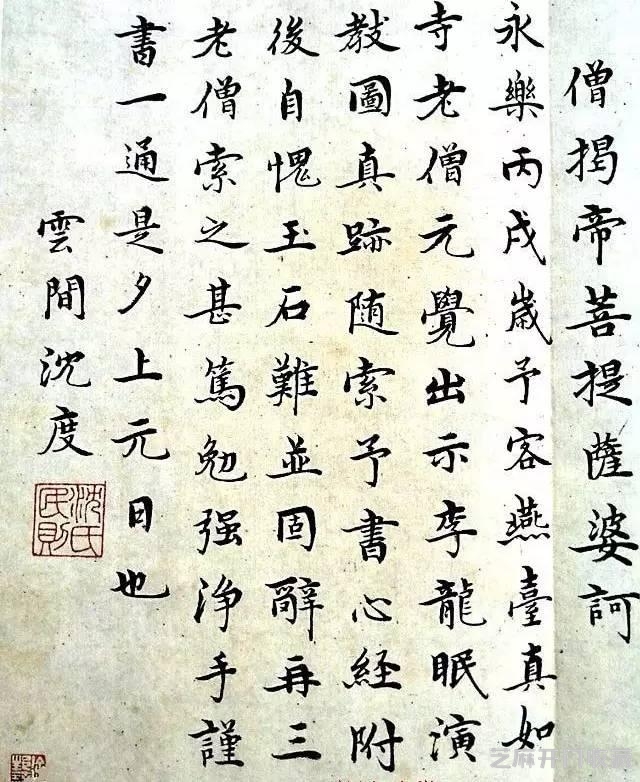 僧揭帝菩提薩婆訶
永樂丙戌歲予客燕臺真如
寺老僧元覺出示李龍眠演
教圖真跡随索予書心經附
後自愧玉石難並固辭再三
老僧索之甚篤勉强浄手謹
書一通是夕上元日也
雲間沈度
沈氏民則